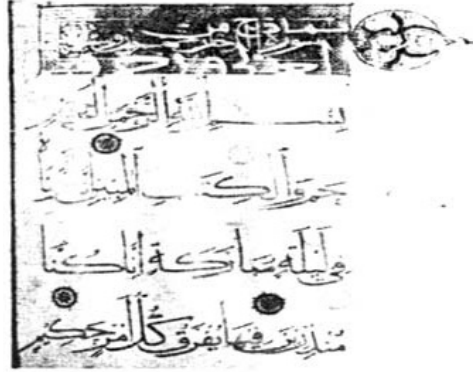 بسم الله الرحمن الرحيم
حم والكتب المبين إنا
في ليلة مباركة إنا كنا
منذرين فيها يفرق كل أمر حكيم